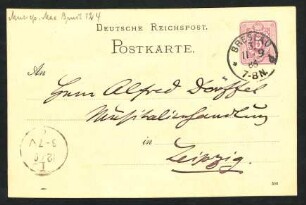 DEUTSCHE REICHSPOST.
POSTKARTE.
BRESLAU
7-8N.
An
Herrn Alfred Dörffel
Musikalienhandlung
in
Leipzig.